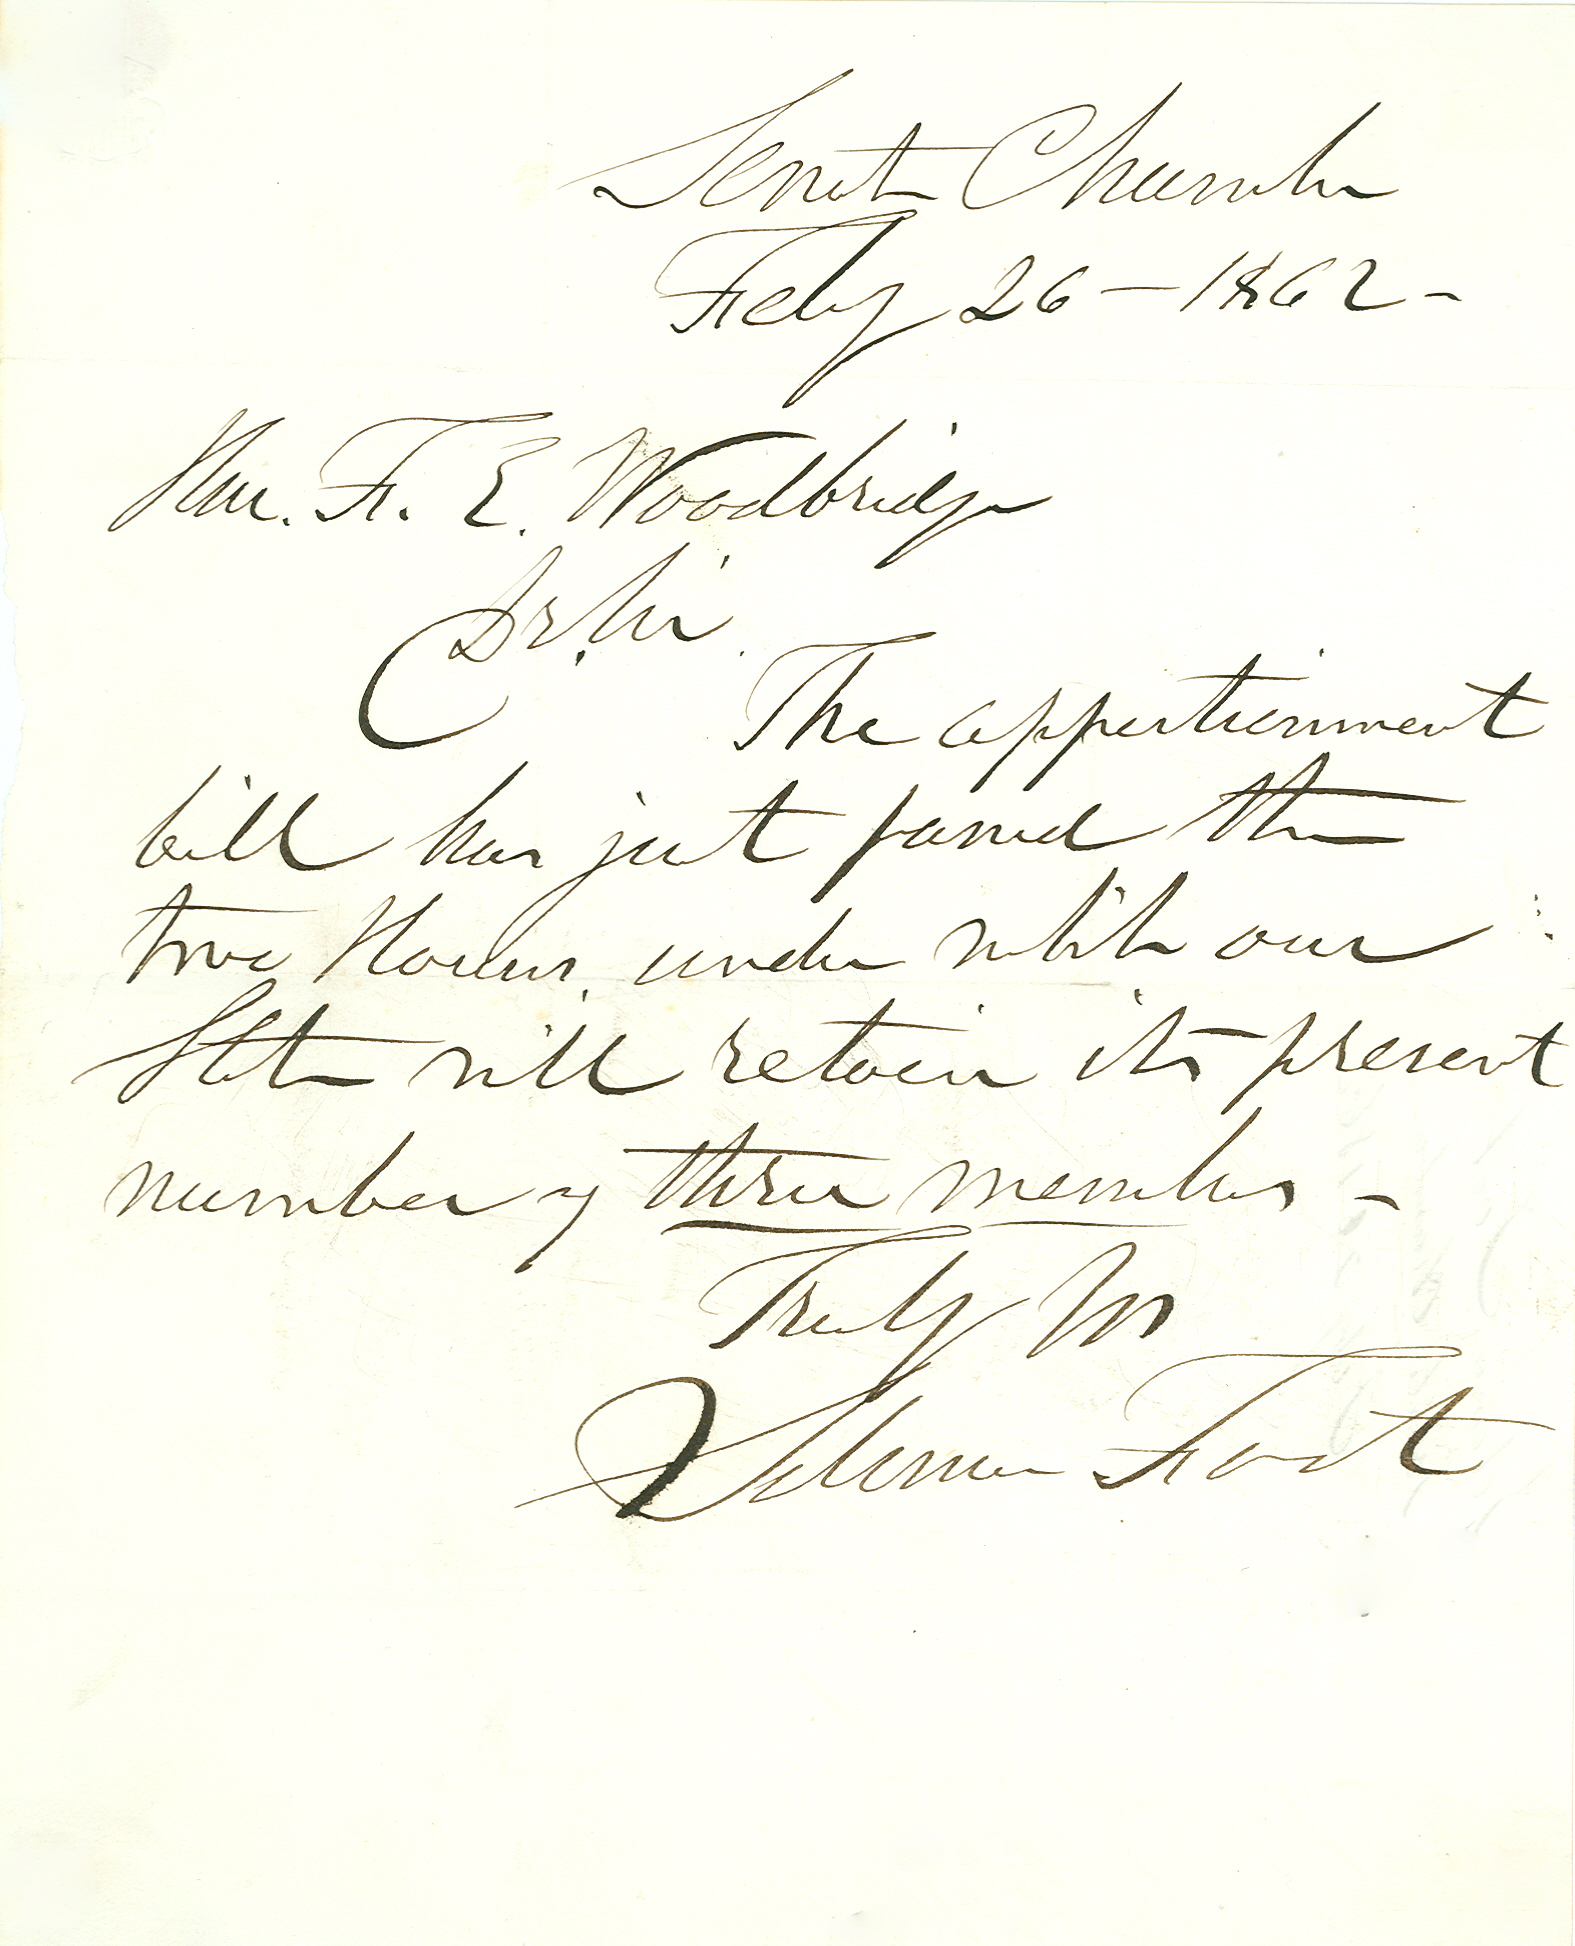 Senate Chamber
Feby 26 - 1862 -
Hon. F. E. Woodbridge
Dr. Sir.
The apportionment
bill has just passed the
two Houses, under which our
State will retain its present
number of three members -
Truly Yrs
Solomon Foot